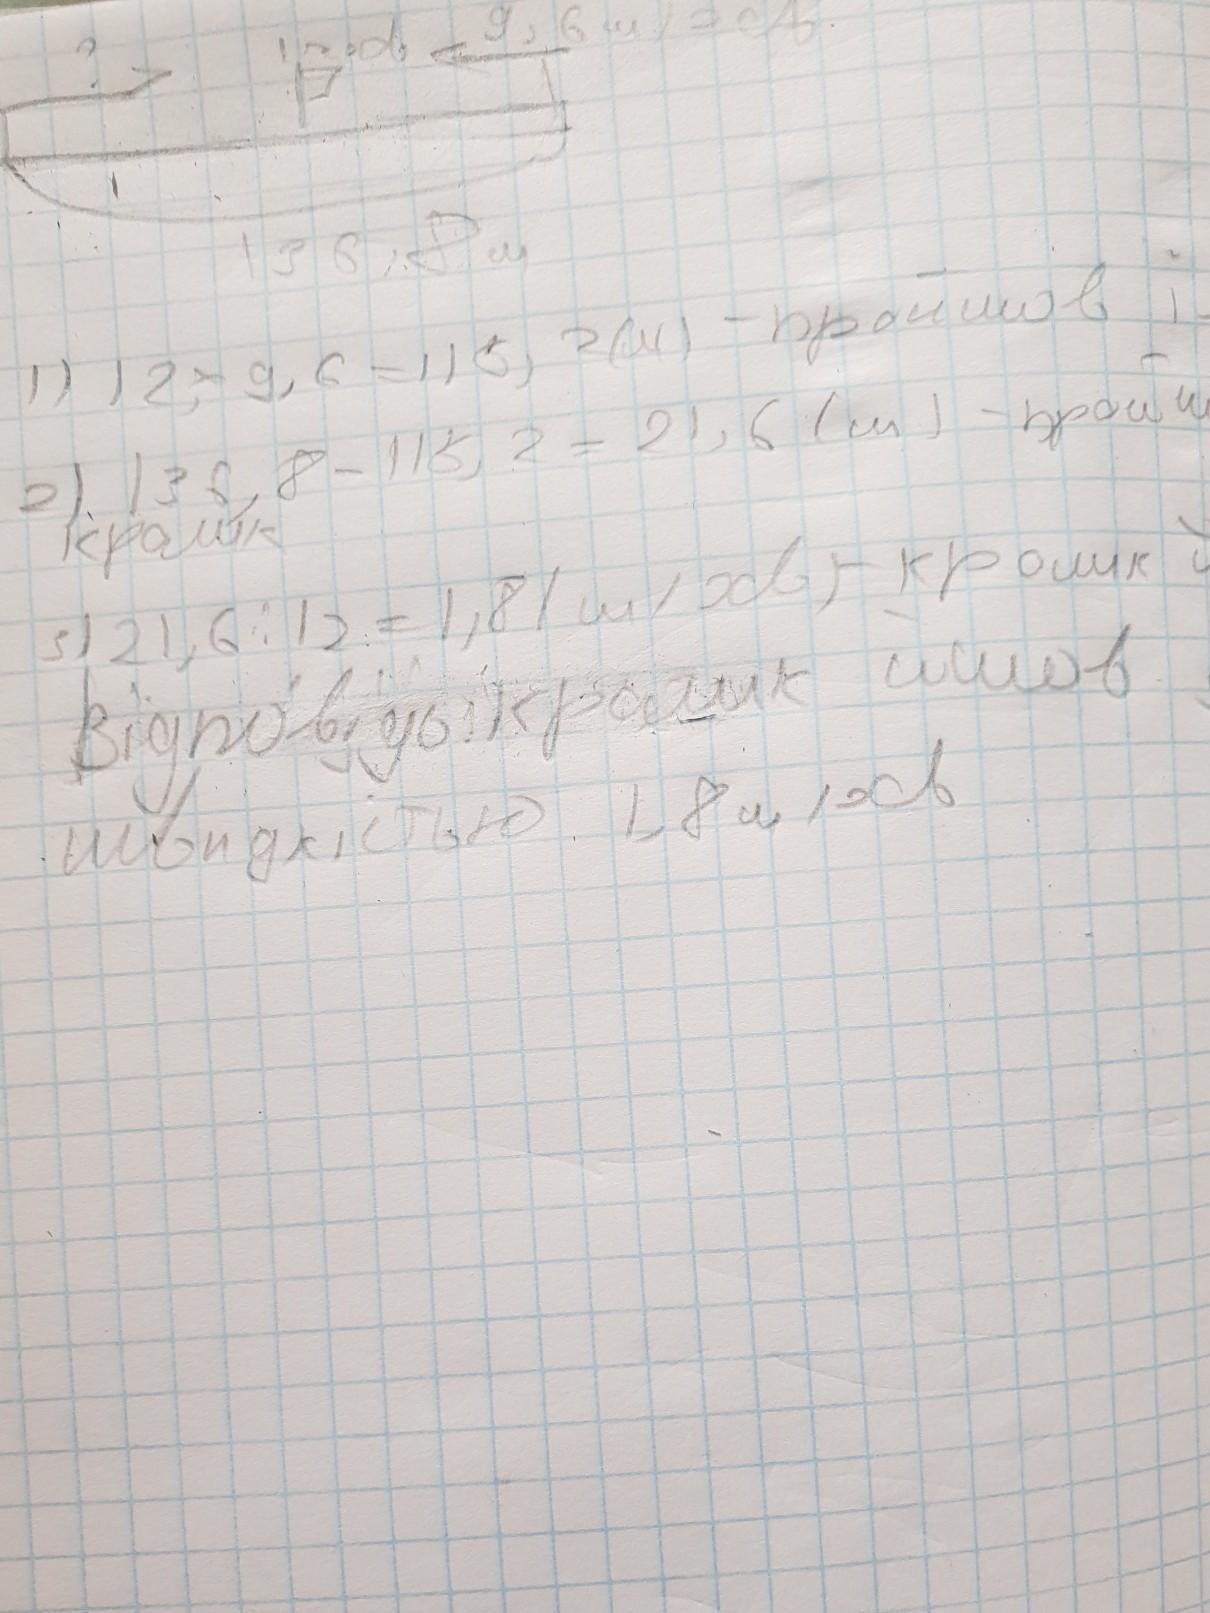 ? 12 хв 9,6 м/хв.
136,8 м
1) 12 · 9,6 = 115,2 (м) - пройшов і
2) 136,8 - 115,2 = 21,6 (м) - прой
кролик
3) 21,6 : 12 = 1,8 (м/хв) - кролик
Відповідь: кролик йшов
швидкістью 1,8 м/хв